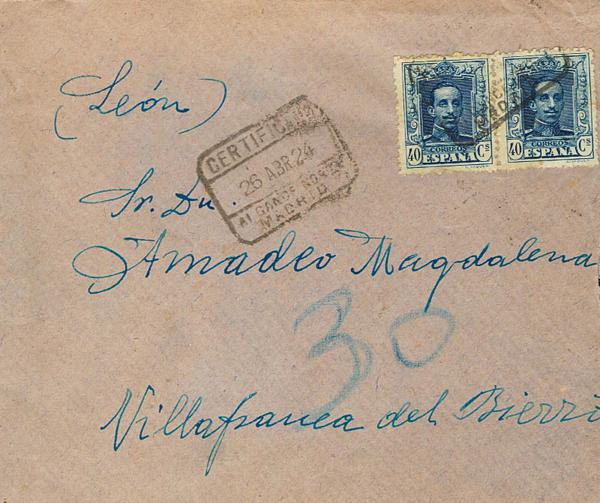 (León)
40 CORREOS Cs
ESPAÑA
40 CORREOS Cs
ESPAÑA
CERTIFICADO
26 ABR 24
MADRID
Sr. Dn.
Amadeo Magdalena
30
Villafranca del Bierzo